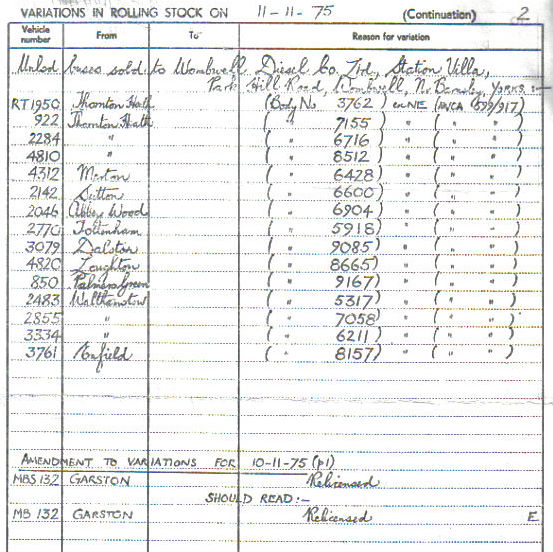 VARIATIONS IN ROLLING STOCK ON 11-11-75 (Continuation) 2
Vehicle number From To Reason for variation
Unlsd buses sold to Wombwell Diesel Co. Ltd., Station Villa,
Park Hill Road, Wombwell, Nr. Barnsley, YORKS :-
RT1950 Thornton Heath (Body No 3762) ex NIE (RNCA 599/917)
922 Thornton Heath ( " 7155 ) " ( " " )
2284 " ( " 6716 ) " ( " " )
4810 " ( " 8512 ) " ( " " )
4312 Merton ( " 6428 ) " ( " " )
2142 Sutton ( " 6600 ) " ( " " )
2046 Abbey Wood ( " 6904 ) " ( " " )
2770 Tottenham ( " 5918 ) " ( " " )
3079 Dalston ( " 9085 ) " ( " " )
4820 Loughton ( " 8665 ) " ( " " )
850 Palmers Green ( " 9167 ) " ( " " )
2483 Walthamstow ( " 5317 ) " ( " " )
2855 " ( " 7058 ) " ( " " )
3334 " ( " 6211 ) " ( " " )
3761 Enfield ( " 8157 ) " ( " " )
AMENDMENT TO VARIATIONS FOR 10-11-75 (p1)
MBS 132 GARSTON Relicensed
SHOULD READ :-
MB 132 GARSTON Relicensed E